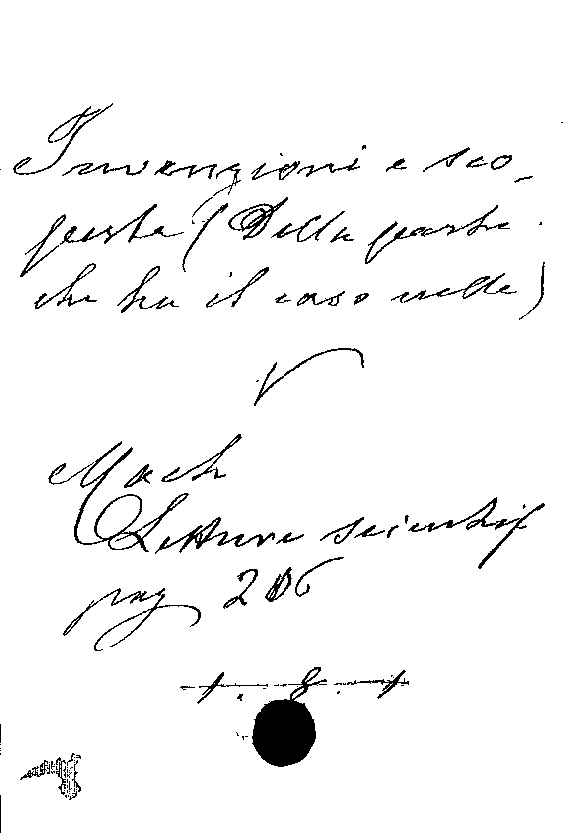 Invenzioni e sco-
perte (Della parte
che ha il caso nelle)
V
Mach
Letture scientif
pag 206
1. 8. 1